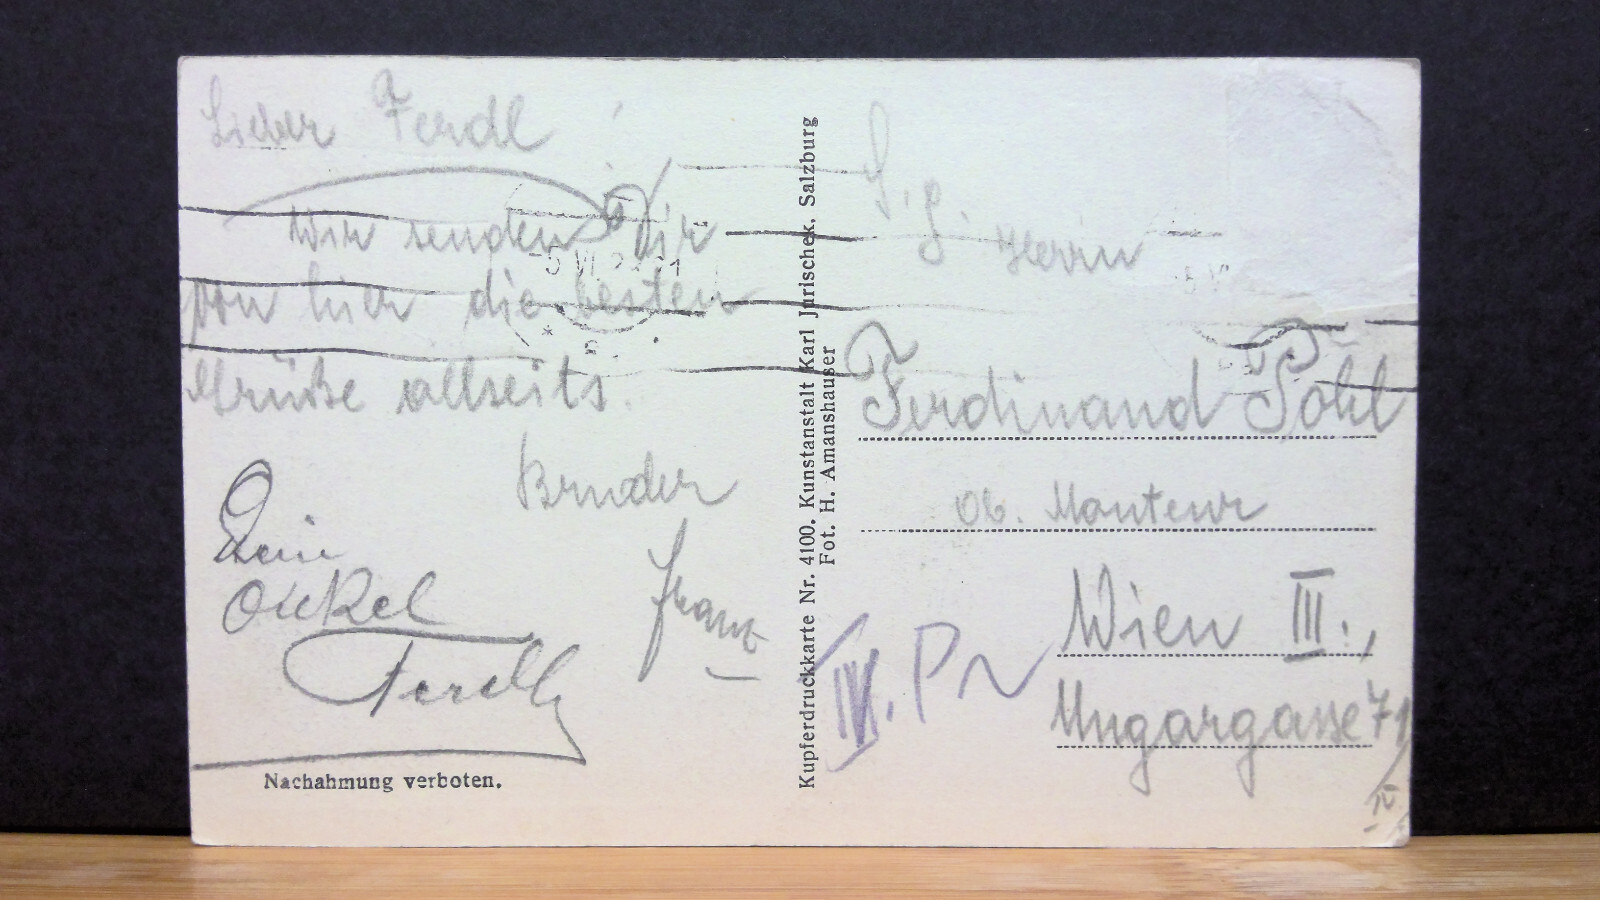 Lieber Ferdl
Wir senden Dir
von hier die besten
Grüße allseits.
Bruder
Franz
Dein
Onkel
Ferdl
Nachahmung verboten.
Kupferdruckkarte Nr. 4100. Kunstanstalt Karl Jurischek, Salzburg
Fot. H. Amanshauser
S. g. Herrn
Ferdinand Pohl
Ob. Monteur
Wien III.,
Ungargasse 71
IV